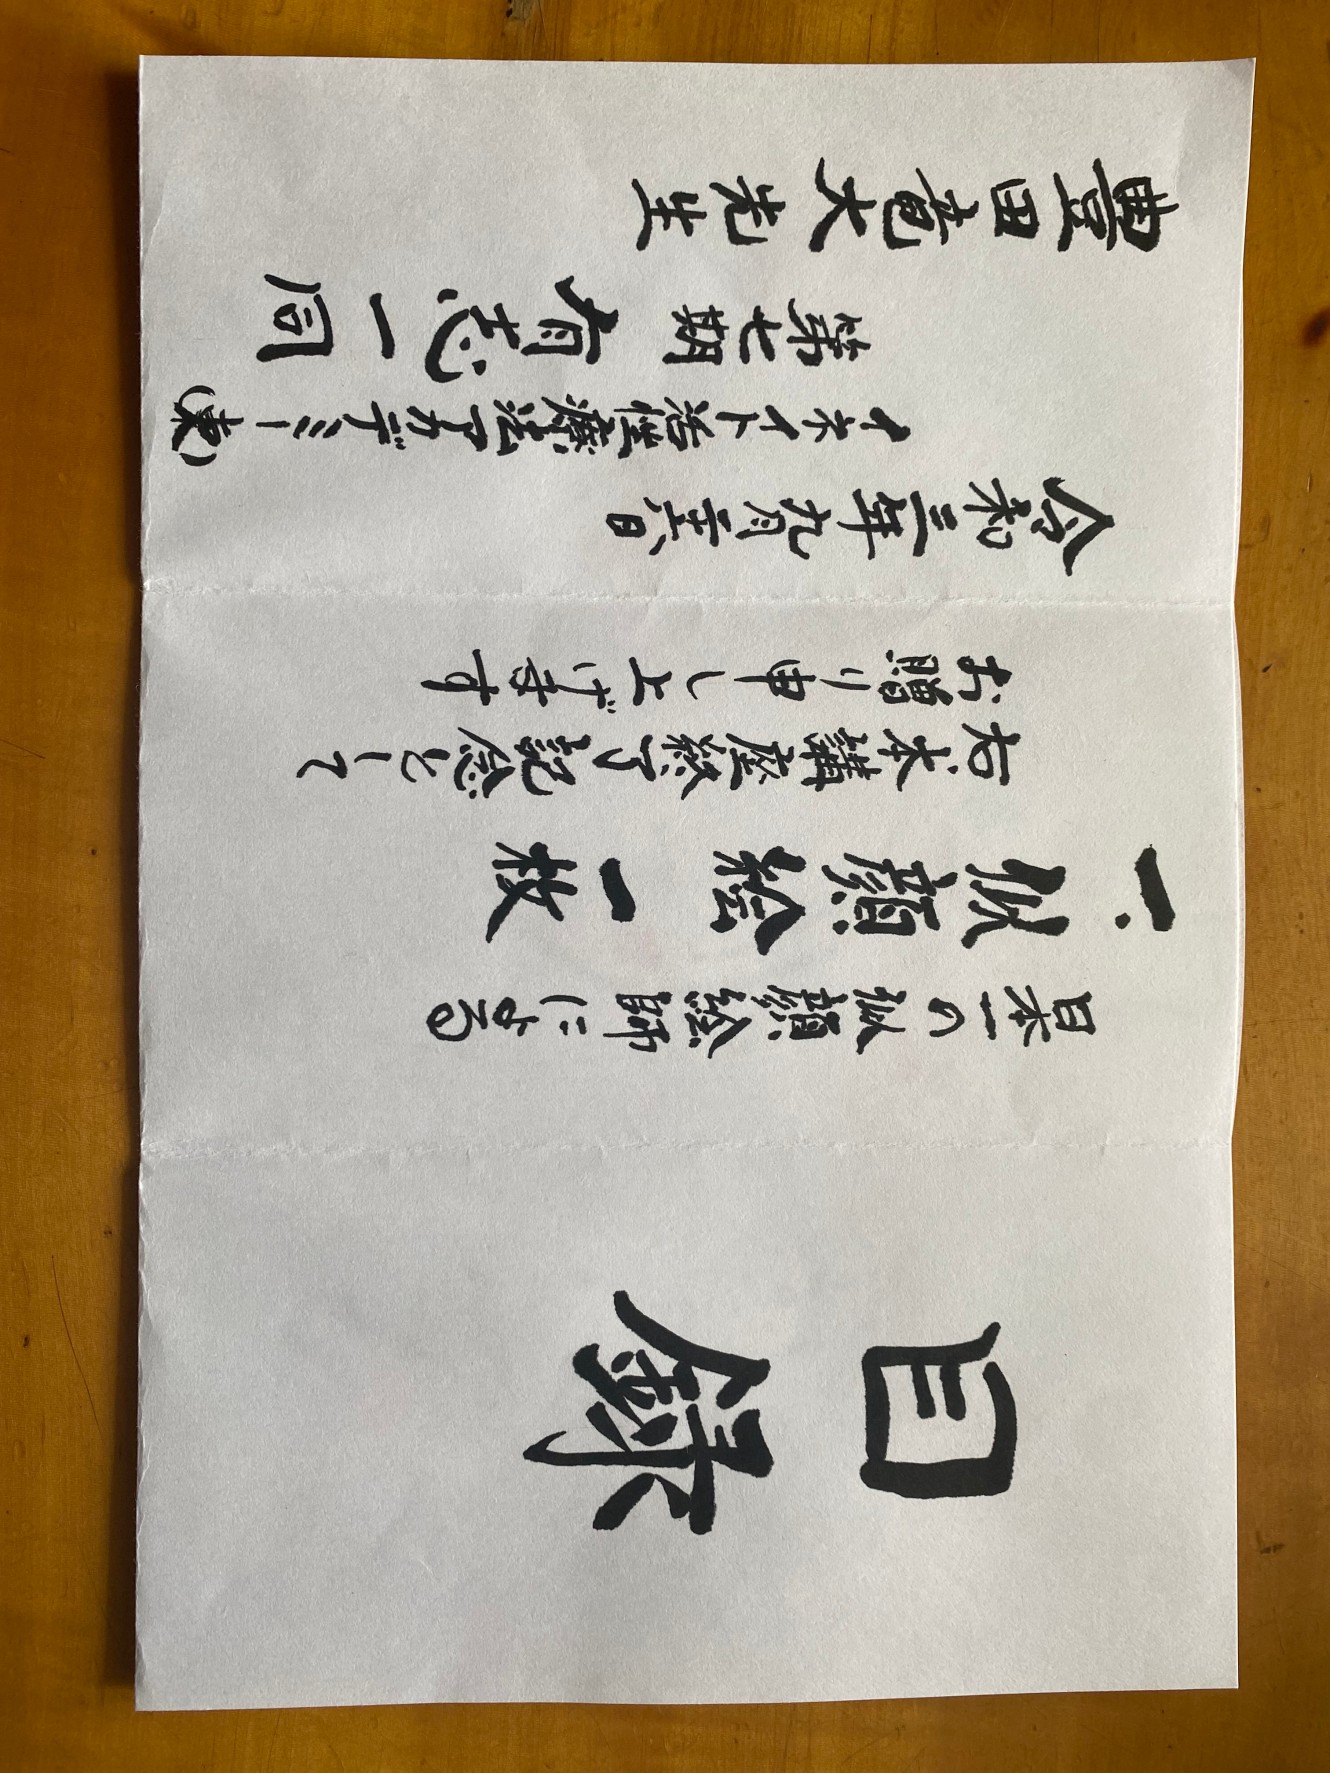 目録
日本一の似顔絵師による
一、似顔絵 一枚
右本講座終了記念として
お贈り申し上げます
令和三年九月二十六日
イネイト活性療法アカデミー(東)
第七期 有志一同
豊田竜大先生